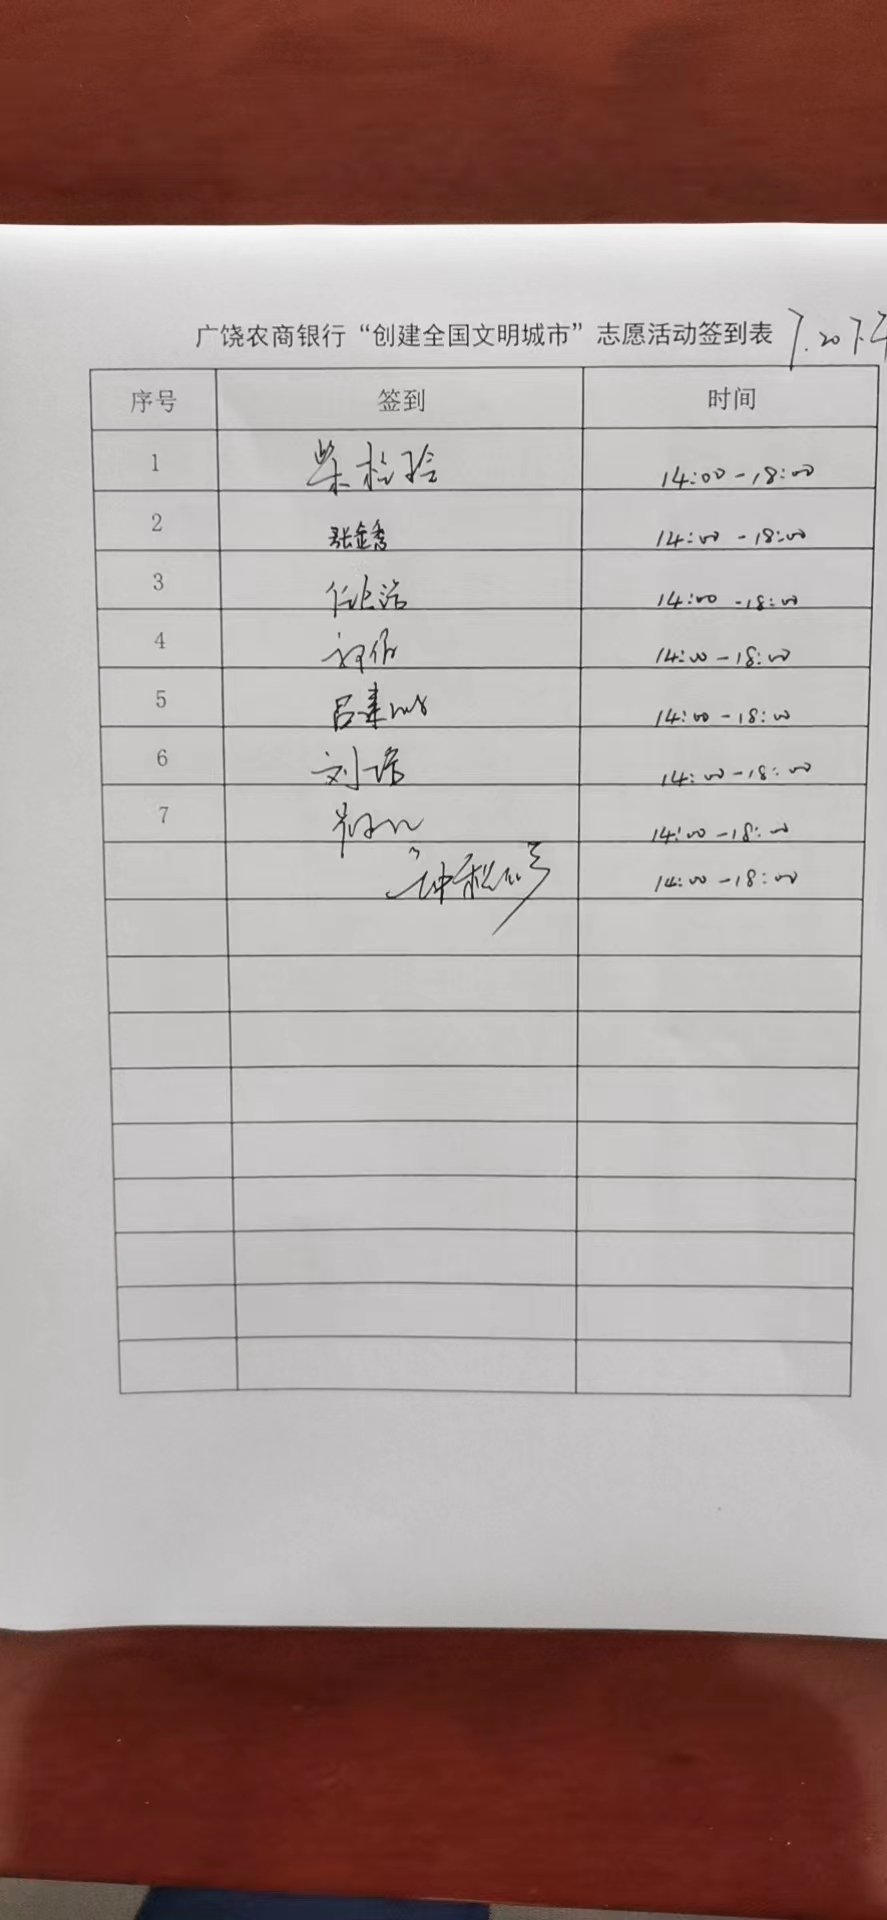 广饶农商银行“创建全国文明城市”志愿活动签到表 7.20下午
序号 签到 时间
1 柴检验 14:00-18:00
2 张金香 14:00-18:00
3 14:00-18:00
4 14:00-18:00
5 吕建 14:00-18:00
6 刘 14:00-18:00
7 14:00-18:00
14:00-18:00